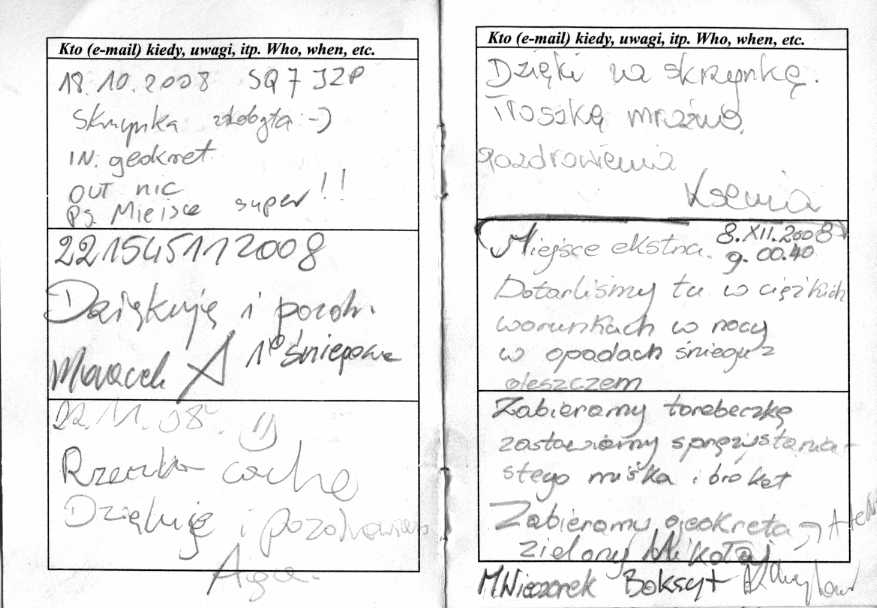 Kto (e-mail) kiedy, uwagi, itp. Who, when, etc.
18.10.2008 SQ7JZP
Skrzynka zdobyta :-)
IN. geokret
OUT nic
PS. Miejsce super!!
22 1545 11 2008
Dziękuję i pozdr.
1° śniegowa
22.11.08r. :)
cache
Dziękuję i pozdrawiam
Aga.
Kto (e-mail) kiedy, uwagi, itp. Who, when, etc.
Dzięki za skrzynkę.
Troszkę mroźno.
pozdrowienia
Ksenia
Miejsce ekstra. 8.XII.2008
g. 00.40
Dotarliśmy tu w ciężkich
warunkach w nocy
w opadach śniegu z
deszczem
Zabieramy torebeczkę
zostawiamy
stego miśka i brelok
Zabieramy geokreta
zielony Mikołaj
M Wieczorek Boksyt